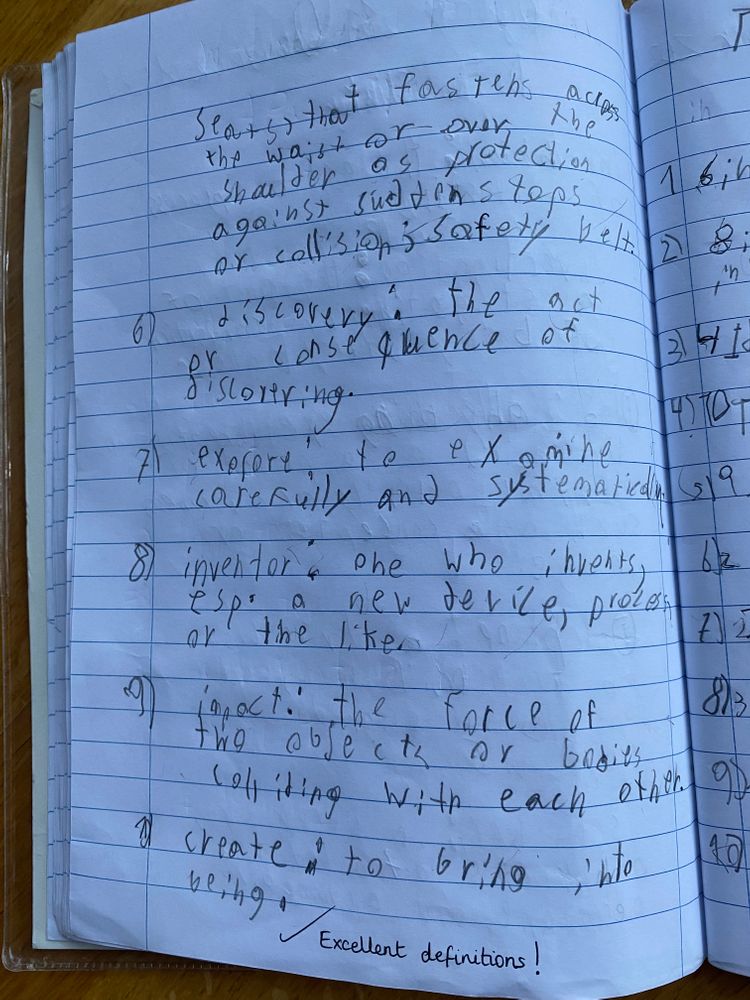 seats) that fastens across
the waist or over the
shoulder as protection
against sudden stops
or collision; safety belt.
6) discovery: the act
or consequence of
discovering.
7) expore: to examine
carefully and systematically
8) inventor: one who invents,
esp. a new device, process
or the like.
9) impact: the force of
two objects or bodies
colliding with each other.
create: to bring into
being.
✓ Excellent definitions!
1
2)
3)
4)
5) 9
6) 2
7)
8) 3
9)
10)